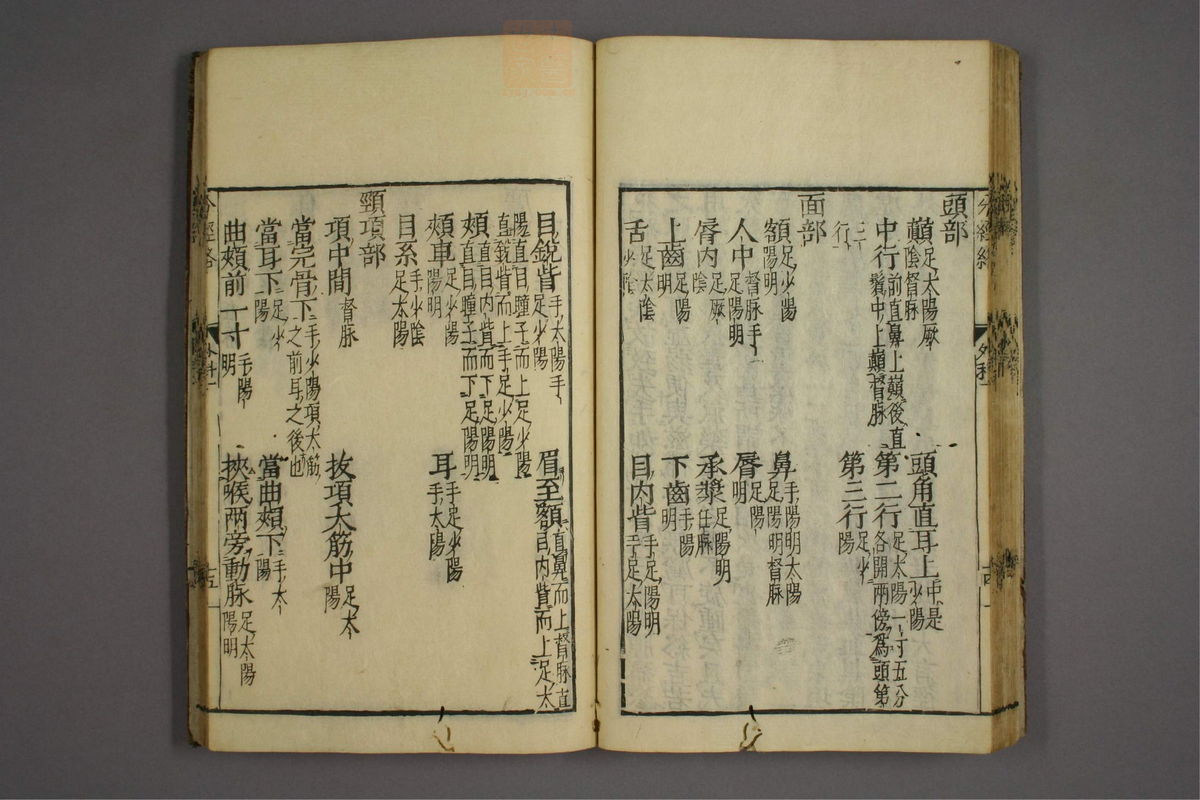 頭部
顛足太陽厥陰督脉
頭角直耳上中是少陽
中行前直鼻上巔後直鬓中上巔督脉
第二行各開兩傍為頭第足太陽一寸五分
三行
第三行足少陽
面部
額足少陽陽明
鼻手陽明太陽足陽明督脉
人中督脉手足陽明
唇足陽明
唇内足厥陰
承漿足陽明任脉
上齒足陽明
下齒手陽明
舌足太陰少陰
目内眥手足陽明手足太陽
目銳眥手太陽手足少陽
眉至額直鼻而上督脉直目内眥而上足太
陽直目瞳子而上足少陽直銳眥而上手足少陽
頰直目内眥而下足陽明直目瞳子而下足陽明
頰車足少陽陽明
耳手足少陽手太陽
目系手少陰足太陽
頸項部
項中間督脉
抜項大筋中足太陽
當完骨下手少陽項大筋之前耳之後也
當耳下足少陽
當曲頰下手太陽
曲頰前一寸手陽明
挾喉兩旁動脉足太陽陽明